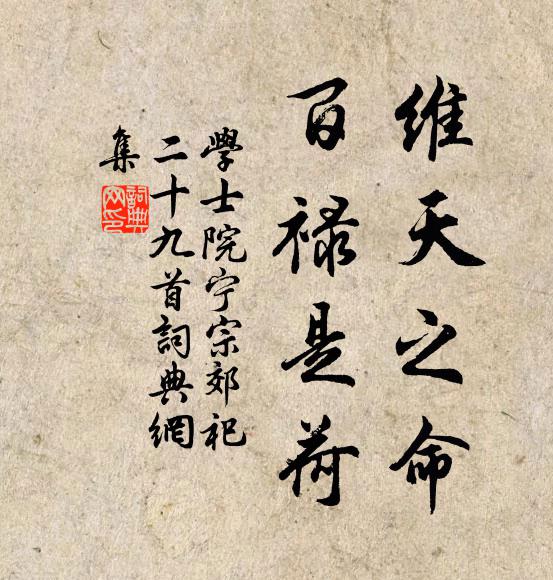 維天之命
百禄是荷
學士院宁宗郊祀
二十九首詞典網
集
詞典网印